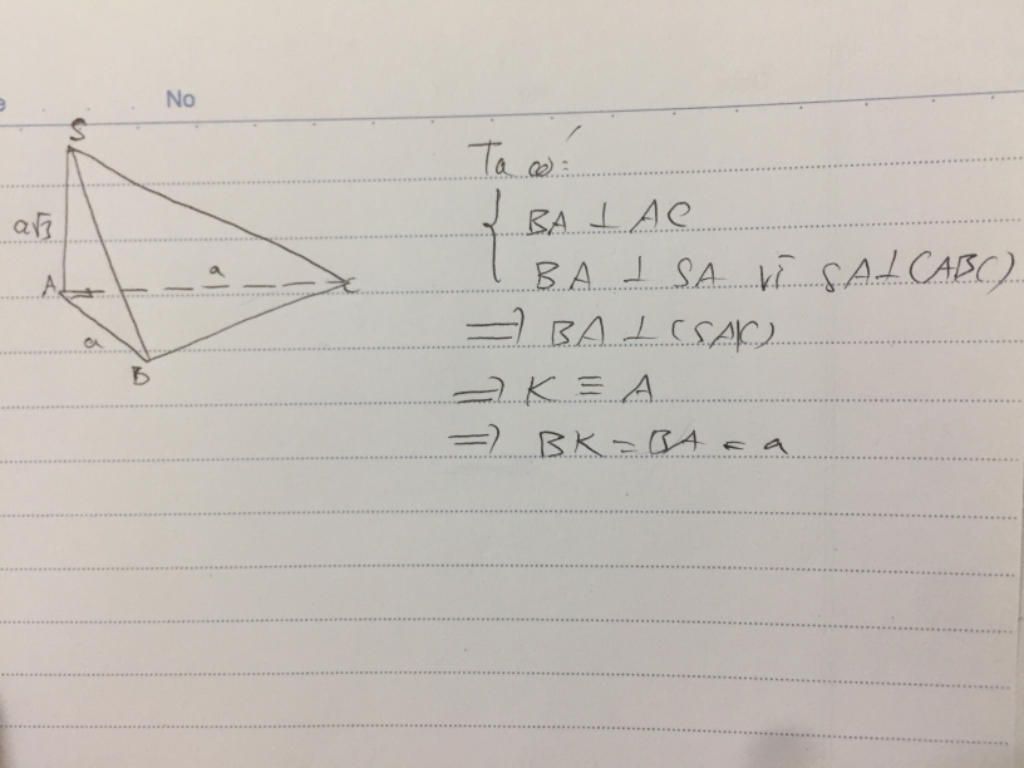 No
S
a√3
A
a
C
a
B
Ta có:
{ BA ⊥ AC
BA ⊥ SA vì SA⊥(ABC)
=> BA ⊥ (SAC)
=> K ≡ A
=> BK = BA = a